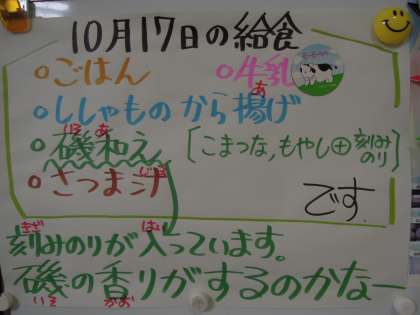 10月17日の給食
○ごはん ○牛乳
○ししゃものから揚げ
○磯和え [こまつな,もやし⊕刻みのり]
○さつま汁
です.
刻みのりが入っています。
磯の香りがするのかなー